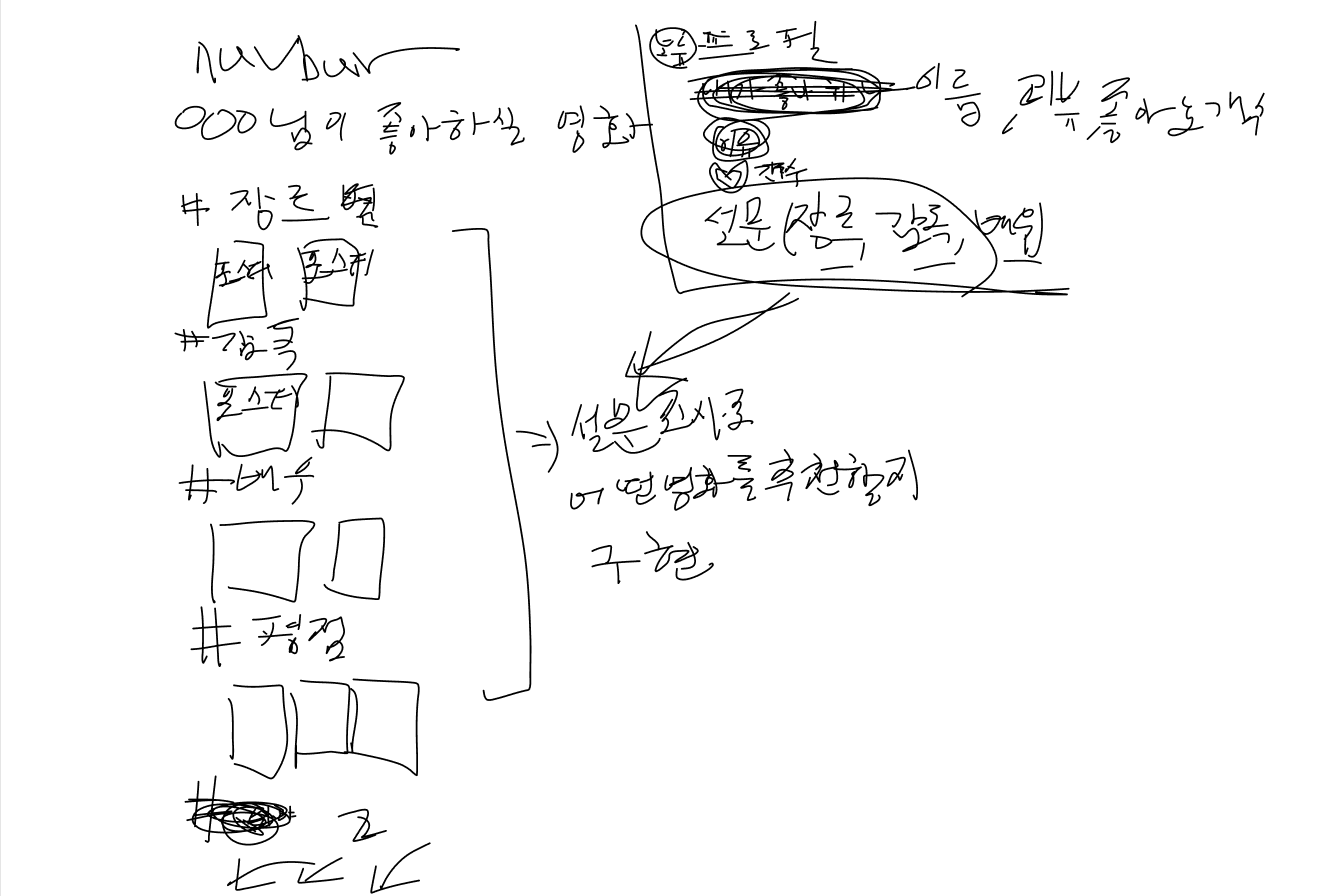 navbar
OOO님이 좋아하실 영화
# 장르 별
포스터 포스터
# 감독
포스터
# 배우
# 평점
#
프로필
이름, 리뷰, 좋아요 갯수
설문(장르, 감독, 배우)
설문조사로
어떤영화를추천할지
구현